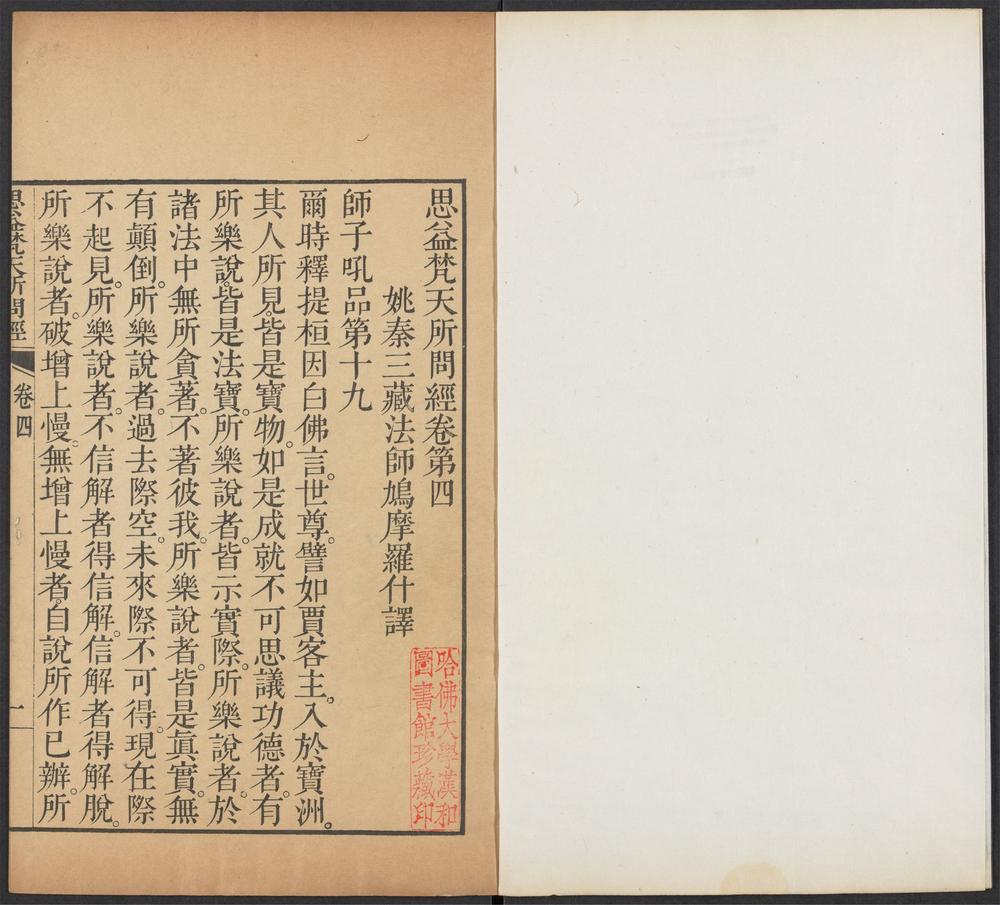 思益梵天所問經卷第四
姚秦三藏法師鳩摩羅什譯
師子吼品第十九
爾時釋提桓因白佛言。世尊。譬如賈客主。入於寶洲。
其人所見。皆是寶物。如是成就不可思議功德者。有
所樂說。皆是法寶。所樂說者。皆示實際。所樂說者。於
諸法中無所貪著。不著彼我。所樂說者。皆是眞實。無
有顛倒。所樂說者。過去際空。未來際不可得。現在際
不起見。所樂說者。不信解者得信解。信解者得解脫。
所樂說者。破增上慢。無增上慢者。自說所作已辦。所
思益梵天所問經 卷四 一
哈佛大學漢和
圖書館珍藏印